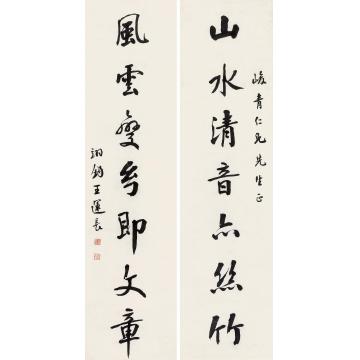 峻青仁兄先生正
山水清音亦絲竹
風雲變幻即文章
翊鈞王運長